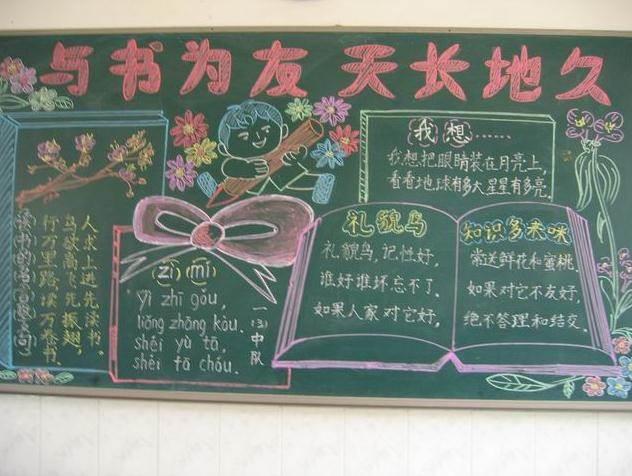 与书为友 天长地久
读书的名言警句
人求上进先读书,
鸟欲高飞先振翅,
行万里路读万卷书.
zì mí
yí zhī gǒu,
liǎng zhāng kǒu.
shéi yù tā,
shéi fā chóu.
一(3)中队
我想……
我想把眼睛装在月亮上,
看看地球有多大星星有多亮.
礼貌鸟
礼貌鸟,记性好,
谁好谁坏忘不了.
如果人家对它好,
知识多来咪
常送鲜花和蜜桃.
如果对它不友好,
绝不答理和结交.